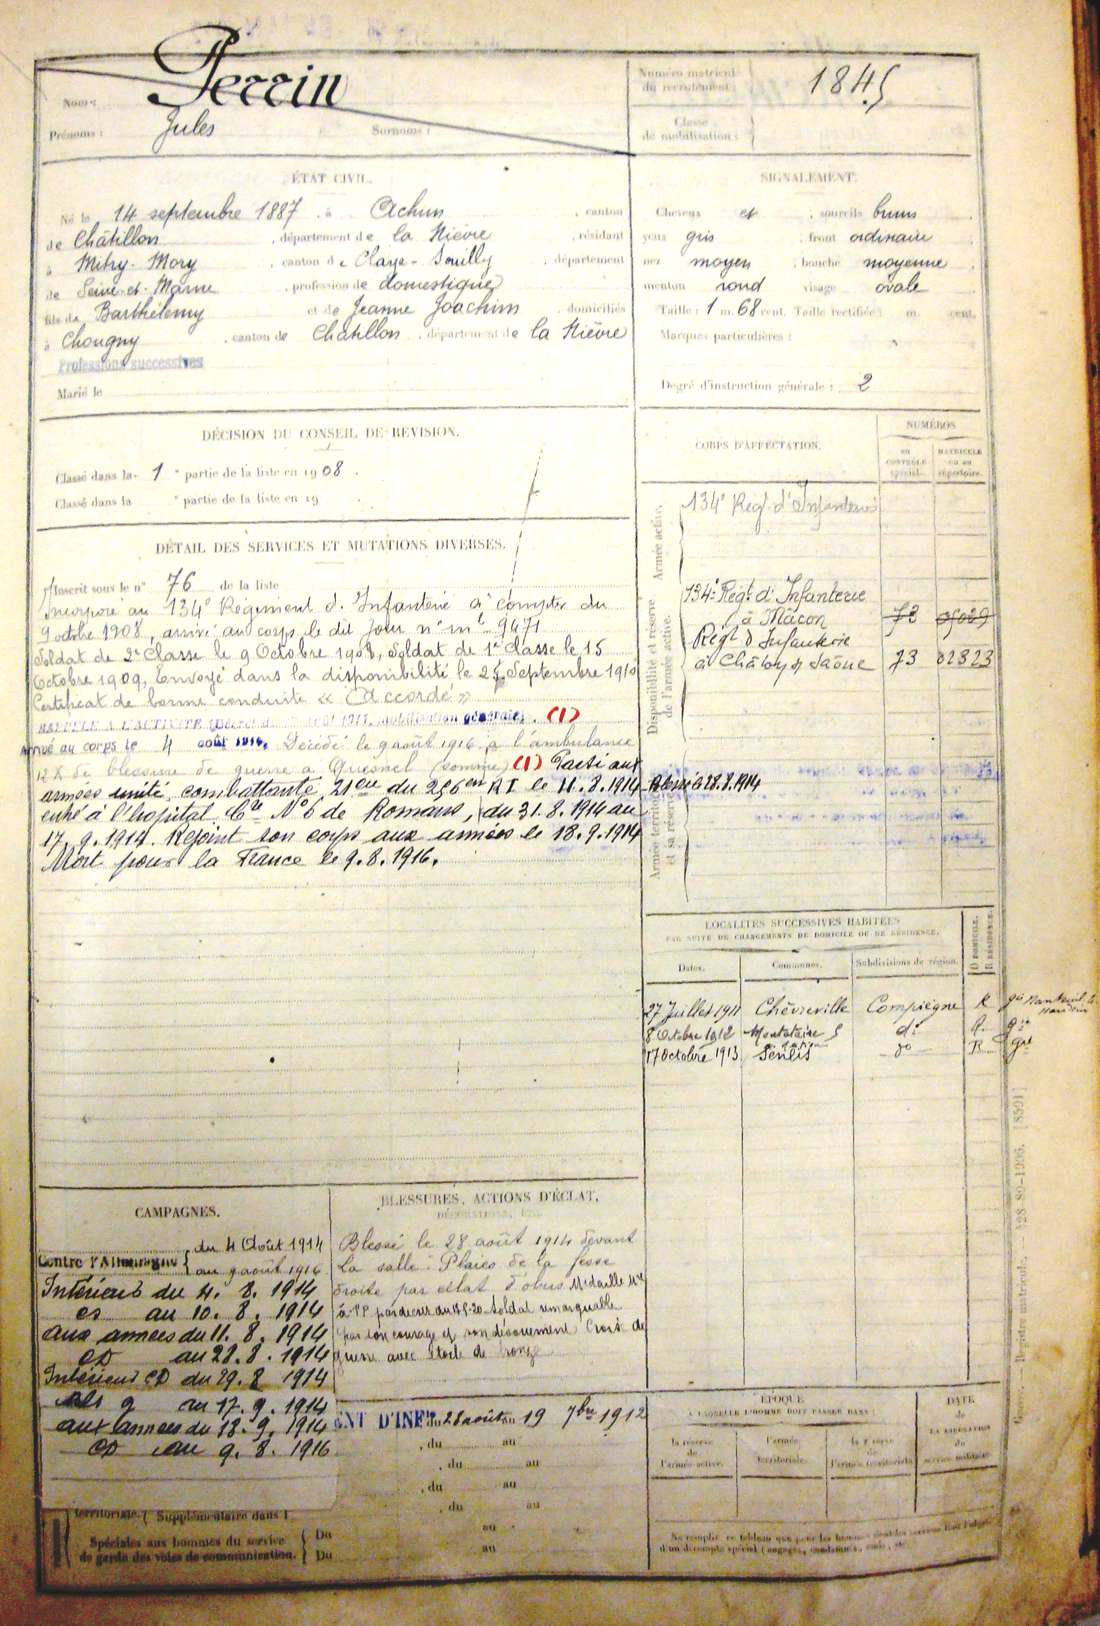 Nom : Perrin
Prénoms : Jules Surnoms :
Numéro matricule du recrutement : 1845
Classe de mobilisation :
ÉTAT CIVIL.
Né le 14 septembre 1887 à Achun , canton
de Châtillon , département de la Nièvre , résidant
à Mitry-Mory , canton de Claye-Souilly , département
de Seine-et-Marne , profession de domestique
fils de Barthélemy et de Jeanne Joachim domiciliés
à Chougny , canton de Châtillon , département de la Nièvre
Professions successives
Marié le
SIGNALEMENT.
Cheveux et sourcils bruns
yeux gris , front ordinaire
nez moyen , bouche moyenne
menton rond visage ovale
Taille : 1 m. 68 cent. Taille rectifiée : m. cent.
Marques particulières :
Degré d'instruction générale : 2
DÉCISION DU CONSEIL DE RÉVISION.
Classé dans la 1 e partie de la liste en 1908 .
Classé dans la e partie de la liste en 19
DÉTAIL DES SERVICES ET MUTATIONS DIVERSES.
Inscrit sous le n° 76 de la liste
Incorporé au 134e Régiment d'Infanterie à compter du
9 octobre 1908, arrivé au corps le dit jour n° mle 9471
Soldat de 2e Classe le 9 Octobre 1908, Soldat de 1e Classe le 15
Octobre 1909, Envoyé dans la disponibilité le 25 Septembre 1910
Certificat de bonne conduite « Accordé »
RAPPELÉ A L'ACTIVITÉ mobilisation générale. (1)
Arrivé au corps le 4 août 1914. Décédé le 9 août 1916 à l'ambulance
de blessure de guerre à Quesnel (Somme) (1) Parti aux
armées unité combattante 21eme du 256eme RI le 11.8.1914 Blessé 28.8.1914
entré à l'hopital Cre N°6 de Romans, du 31.8.1914 au
17.9.1914. Rejoint son corps aux armées le 18.9.1914
Mort pour la France le 9.8.1916.
CORPS D'AFFECTATION.
NUMÉROS
au CONTRÔLE spécial.
MATRICULE ou au répertoire.
Armée active.
134e Régt d'Infanterie
Disponibilité et réserve de l'armée active.
134e Régt d'Infanterie
à Mâcon 73
Régt d'Infanterie
à Châlon s/ Saône 73 02323
Armée territoriale et sa réserve
LOCALITÉS SUCCESSIVES HABITÉES
PAR SUITE DE CHANGEMENTS DE DOMICILE OU DE RÉSIDENCE.
Dates. Communes. Subdivisions de région. D DOMICILE. R RÉSIDENCE.
27 Juillet 1911 Chèvreville Compiègne R gie Nanteuil le Haudouin
8 Octobre 1912 Montataire do R. gie
17 Octobre 1913 Senlis do R gie
CAMPAGNES.
Contre l'Allemagne { du 4 Août 1914
au 9 août 1916
Intérieur du 4. 8. 1914
au 10. 8. 1914
aux armées du 11. 8. 1914
CD au 28. 8. 1914
Intérieur CD du 29. 8 1914
au 17. 9. 1914
aux armées du 18. 9. 1914
CD au 9. 8. 1916
BLESSURES, ACTIONS D'ÉCLAT,
DÉCORATIONS, ETC.
Blessé le 28 août 1914 devant
la salle. Plaies de la fesse
droite par éclat d'obus. Médaille Mre
à T.P. Soldat remarquable
par son courage et son dévouement. Croix de
guerre avec étoile de bronze
ENT D'INFie du 28 août au 19 7bre 1912
, du au
, du au
, du au
, du au
au
au
territoriale. ( Supplémentaire dans l
Spéciales aux hommes du service
de garde des voies de communication. { Du
Du
ÉPOQUE
A LAQUELLE L'HOMME DOIT PASSER DANS :
la réserve de l'armée active.
l'armée territoriale.
la réserve de l'armée territoriale
DATE de LA LIBÉRATION du service militaire